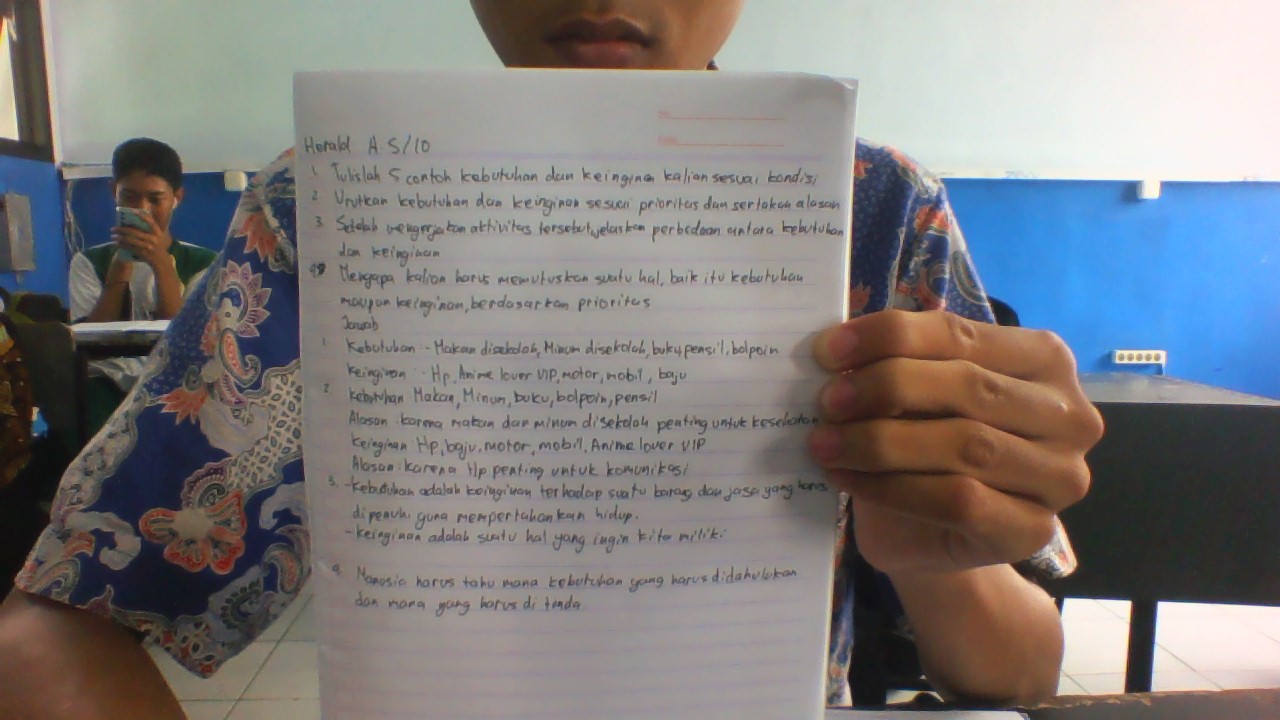 Herald A.S/10
1. Tulislah 5 contoh kebutuhan dan keinginan kalian sesuai kondisi
2. Urutkan kebutuhan dan keinginan sesuai prioritas dan sertakan alasan
3. Setelah mengerjakan aktivitas tersebut, jelaskan perbedaan antara kebutuhan
dan keinginan
4. Mengapa kalian harus memutuskan suatu hal, baik itu kebutuhan
maupun keinginan, berdasarkan prioritas
Jawab
1. Kebutuhan :- Makan disekolah, Minum disekolah, buku, pensil, bolpoin
Keinginan :- Hp, Anime lover VIP, motor, mobil, baju
2. kebutuhan Makan, Minum, buku, bolpoin, pensil
Alasan : karena makan dan minum disekolah penting untuk kesehatan
Keinginan : Hp, baju, motor, mobil, Anime lover VIP
Alasan : karena Hp penting untuk komunikasi
3. - Kebutuhan adalah keinginan terhadap suatu barang dan jasa yang harus
dipenuhi guna mempertahankan hidup.
- keinginan adalah suatu hal yang ingin kita miliki
4. Manusia harus tahu mana kebutuhan yang harus didahulukan
dan mana yang harus di tunda.